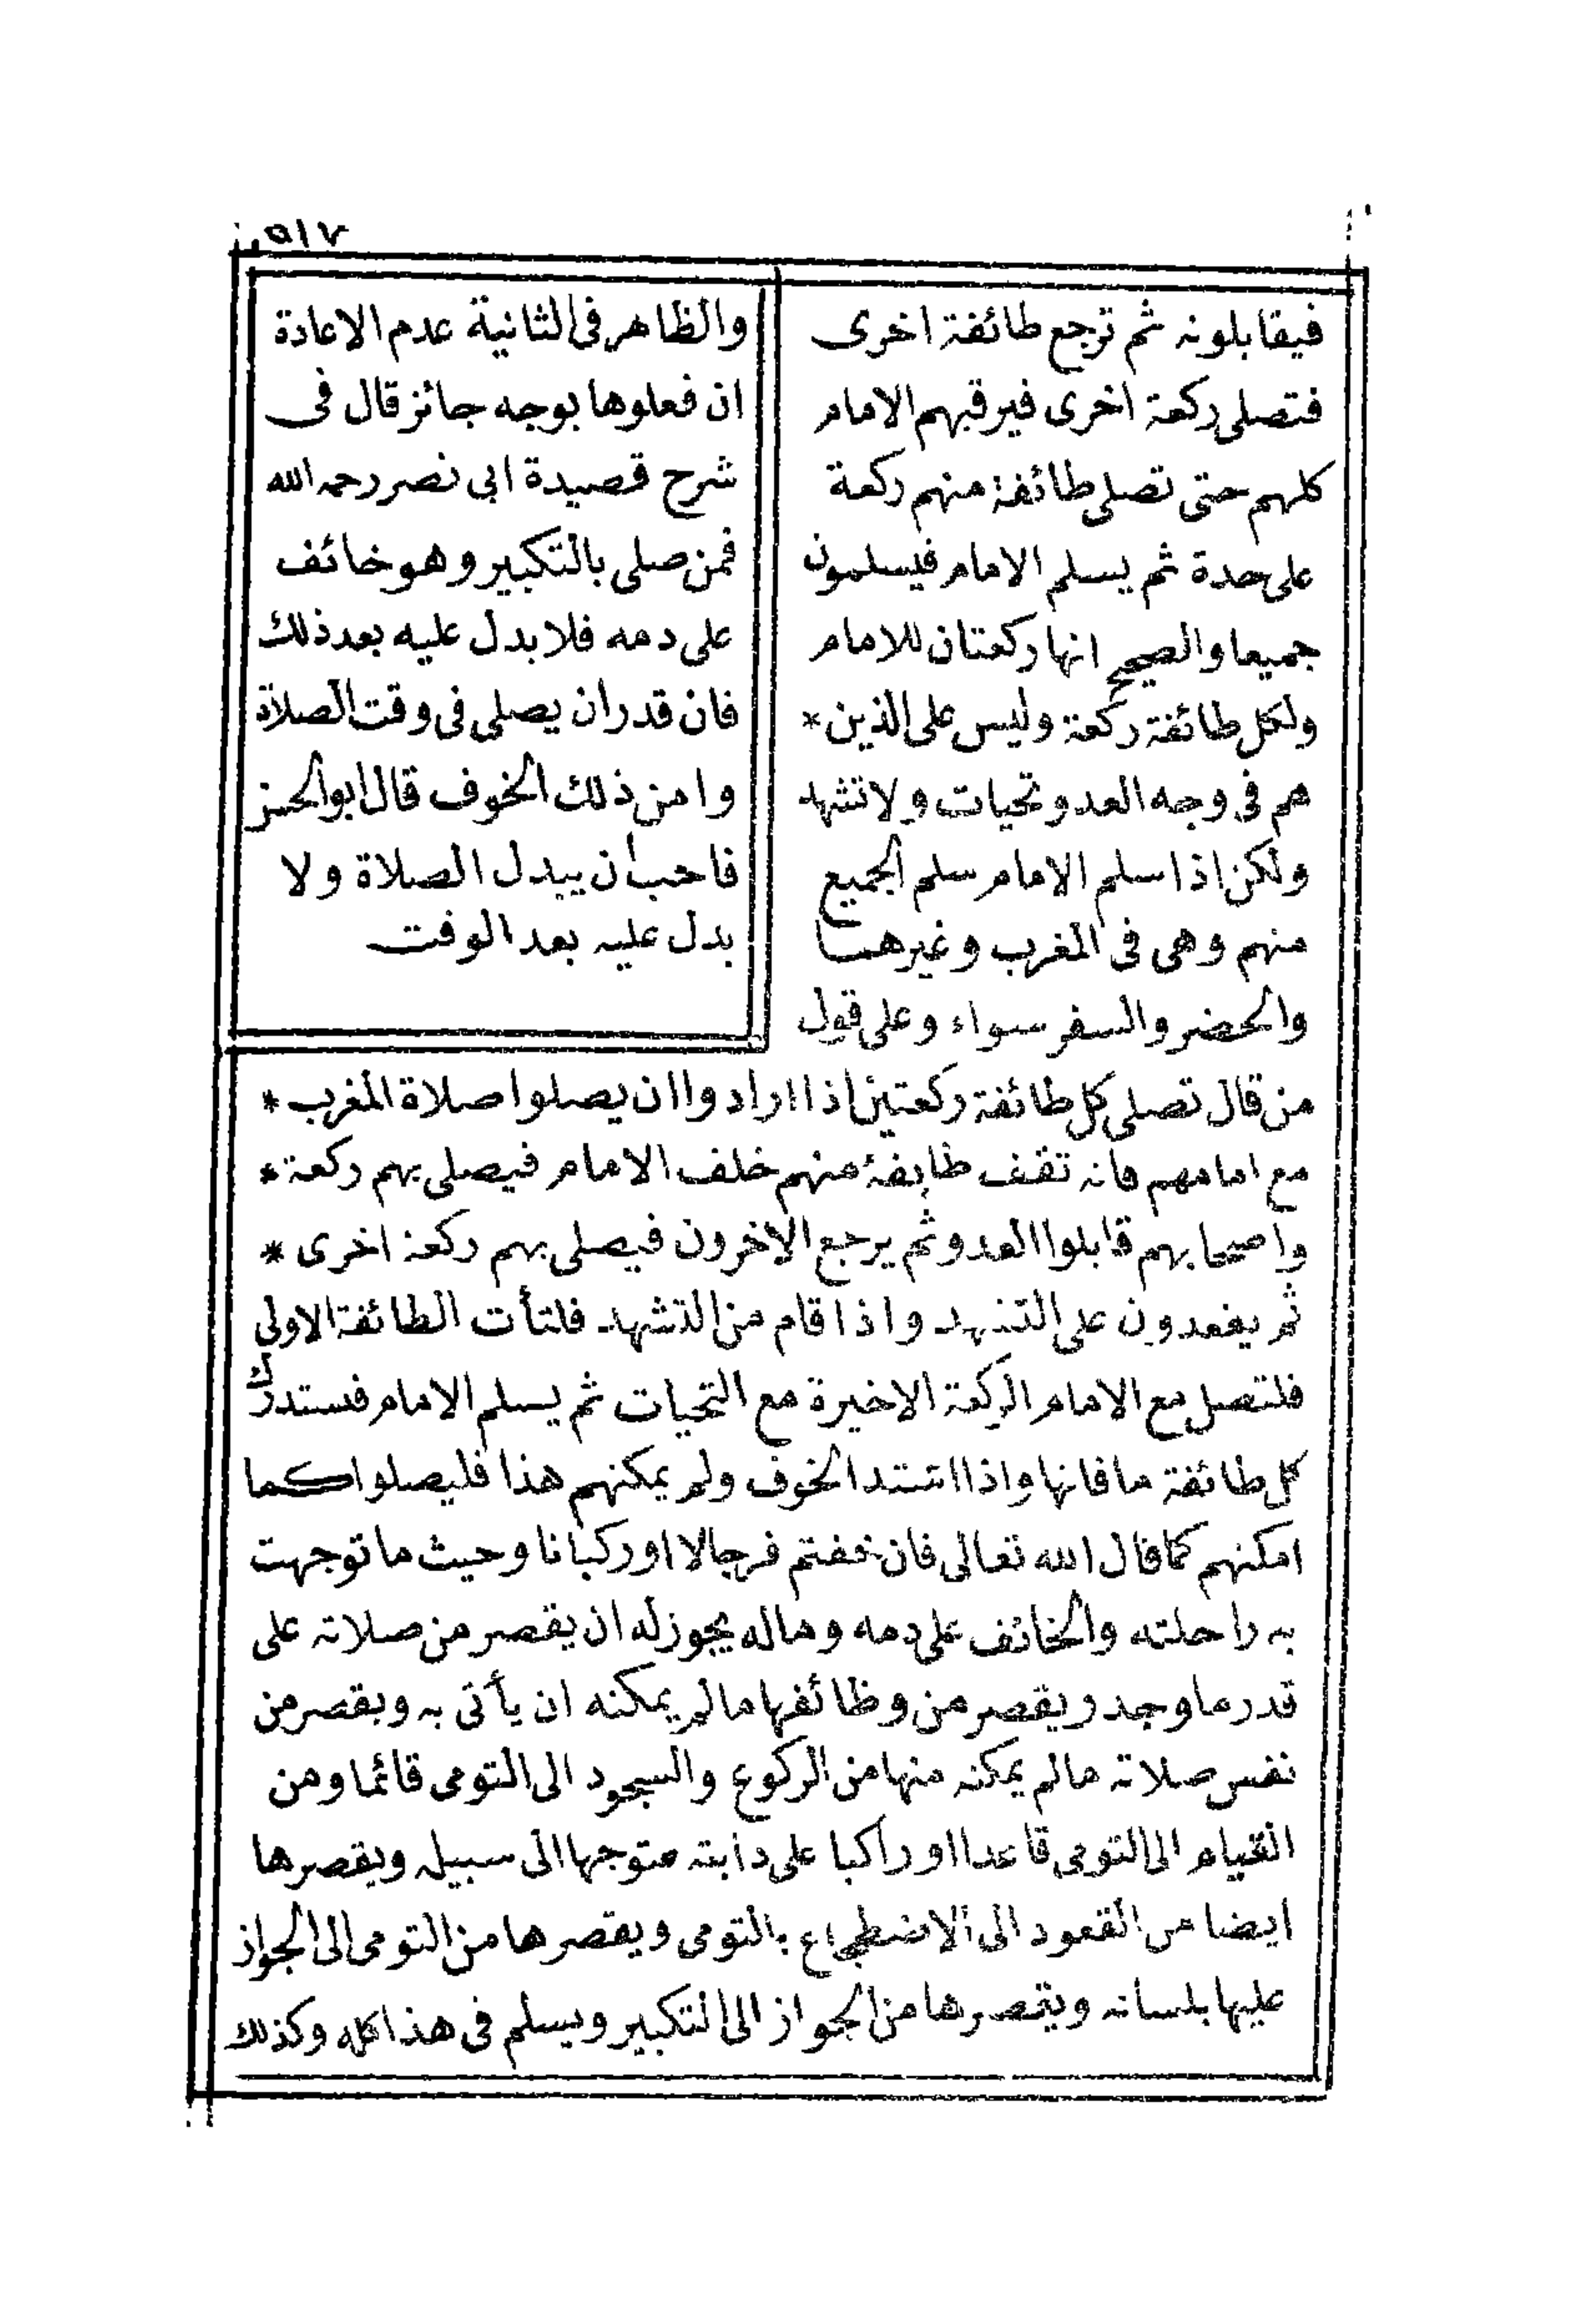 ٥١٧
فيقابلونه ثم ترجع طائفة اخرى
فتصلى ركعة اخرى فيرقبهم الامام
كلهم حتى تصلى طائفة منهم ركعة
على حدة ثم يسلم الامام فيسلمون
جميعا والصحيح انها ركعتان للامام
ولكل طائفة ركعة وليس على الذين *
هم فى وجه العدو تحيات ولا تشهد
ولكن اذا سلم الامام سلم الجميع
منهم وهى فى المغرب وغيرهما
والحضر والسفر سواء وعلى قول
والظاهر فى الثانية عدم الاعادة
ان فعلوها بوجه جائز قال فى
شرح قصيدة ابى نصر رحمه الله
فمن صلى بالتكبير وهو خائف
على دمه فلا بدل عليه بعد ذلك
فان قدر ان يصلى فى وقت الصلاة
وامن ذلك الخوف قال ابو الحسن
فاحب أن يبدل الصلاة ولا
بدل عليه بعد الوقت
من قال تصلى كل طائفة ركعتين اذا ارادوا ان يصلوا صلاة المغرب *
مع امامهم فانه تقف طايفة منهم خلف الامام فيصلى بهم ركعة *
واصحابهم قابلوا العدو ثم يرجع الاخرون فيصلى بهم ركعة اخرى *
ثم يقعدون على التشهد واذا قام من التشهد فلتأت الطائفة الاولى
فلتصل مع الامام الركعة الاخيرة مع التحيات ثم يسلم الامام فستدرك
كل طائفة ما فاتها واذا اشتد الخوف ولم يمكنهم هذا فليصلوا كما
امكنهم كما قال الله تعالى فان خفتم فرجالا او ركبانا وحيث ما توجهت
به راحلته والخائف على دمه وماله يجوز له ان يقصر من صلاته على
قدر ما وجد ويقصر من وظائفها ما لم يمكنه ان يأتى به ويقصر من
نفس صلاته ما لم يمكنه منها من الركوع والسجود الى التومى قائما ومن
القيام الى التومى قاعدا او راكبا على دابته متوجها الى سبيله ويقصرها
ايضا من القعود الى الاضطجاع بالتومى ويقصرها من التومى الى الجواز
عليها بلسانه ويقصرها من الجواز الى التكبير ويسلم فى هذا كله وكذلك